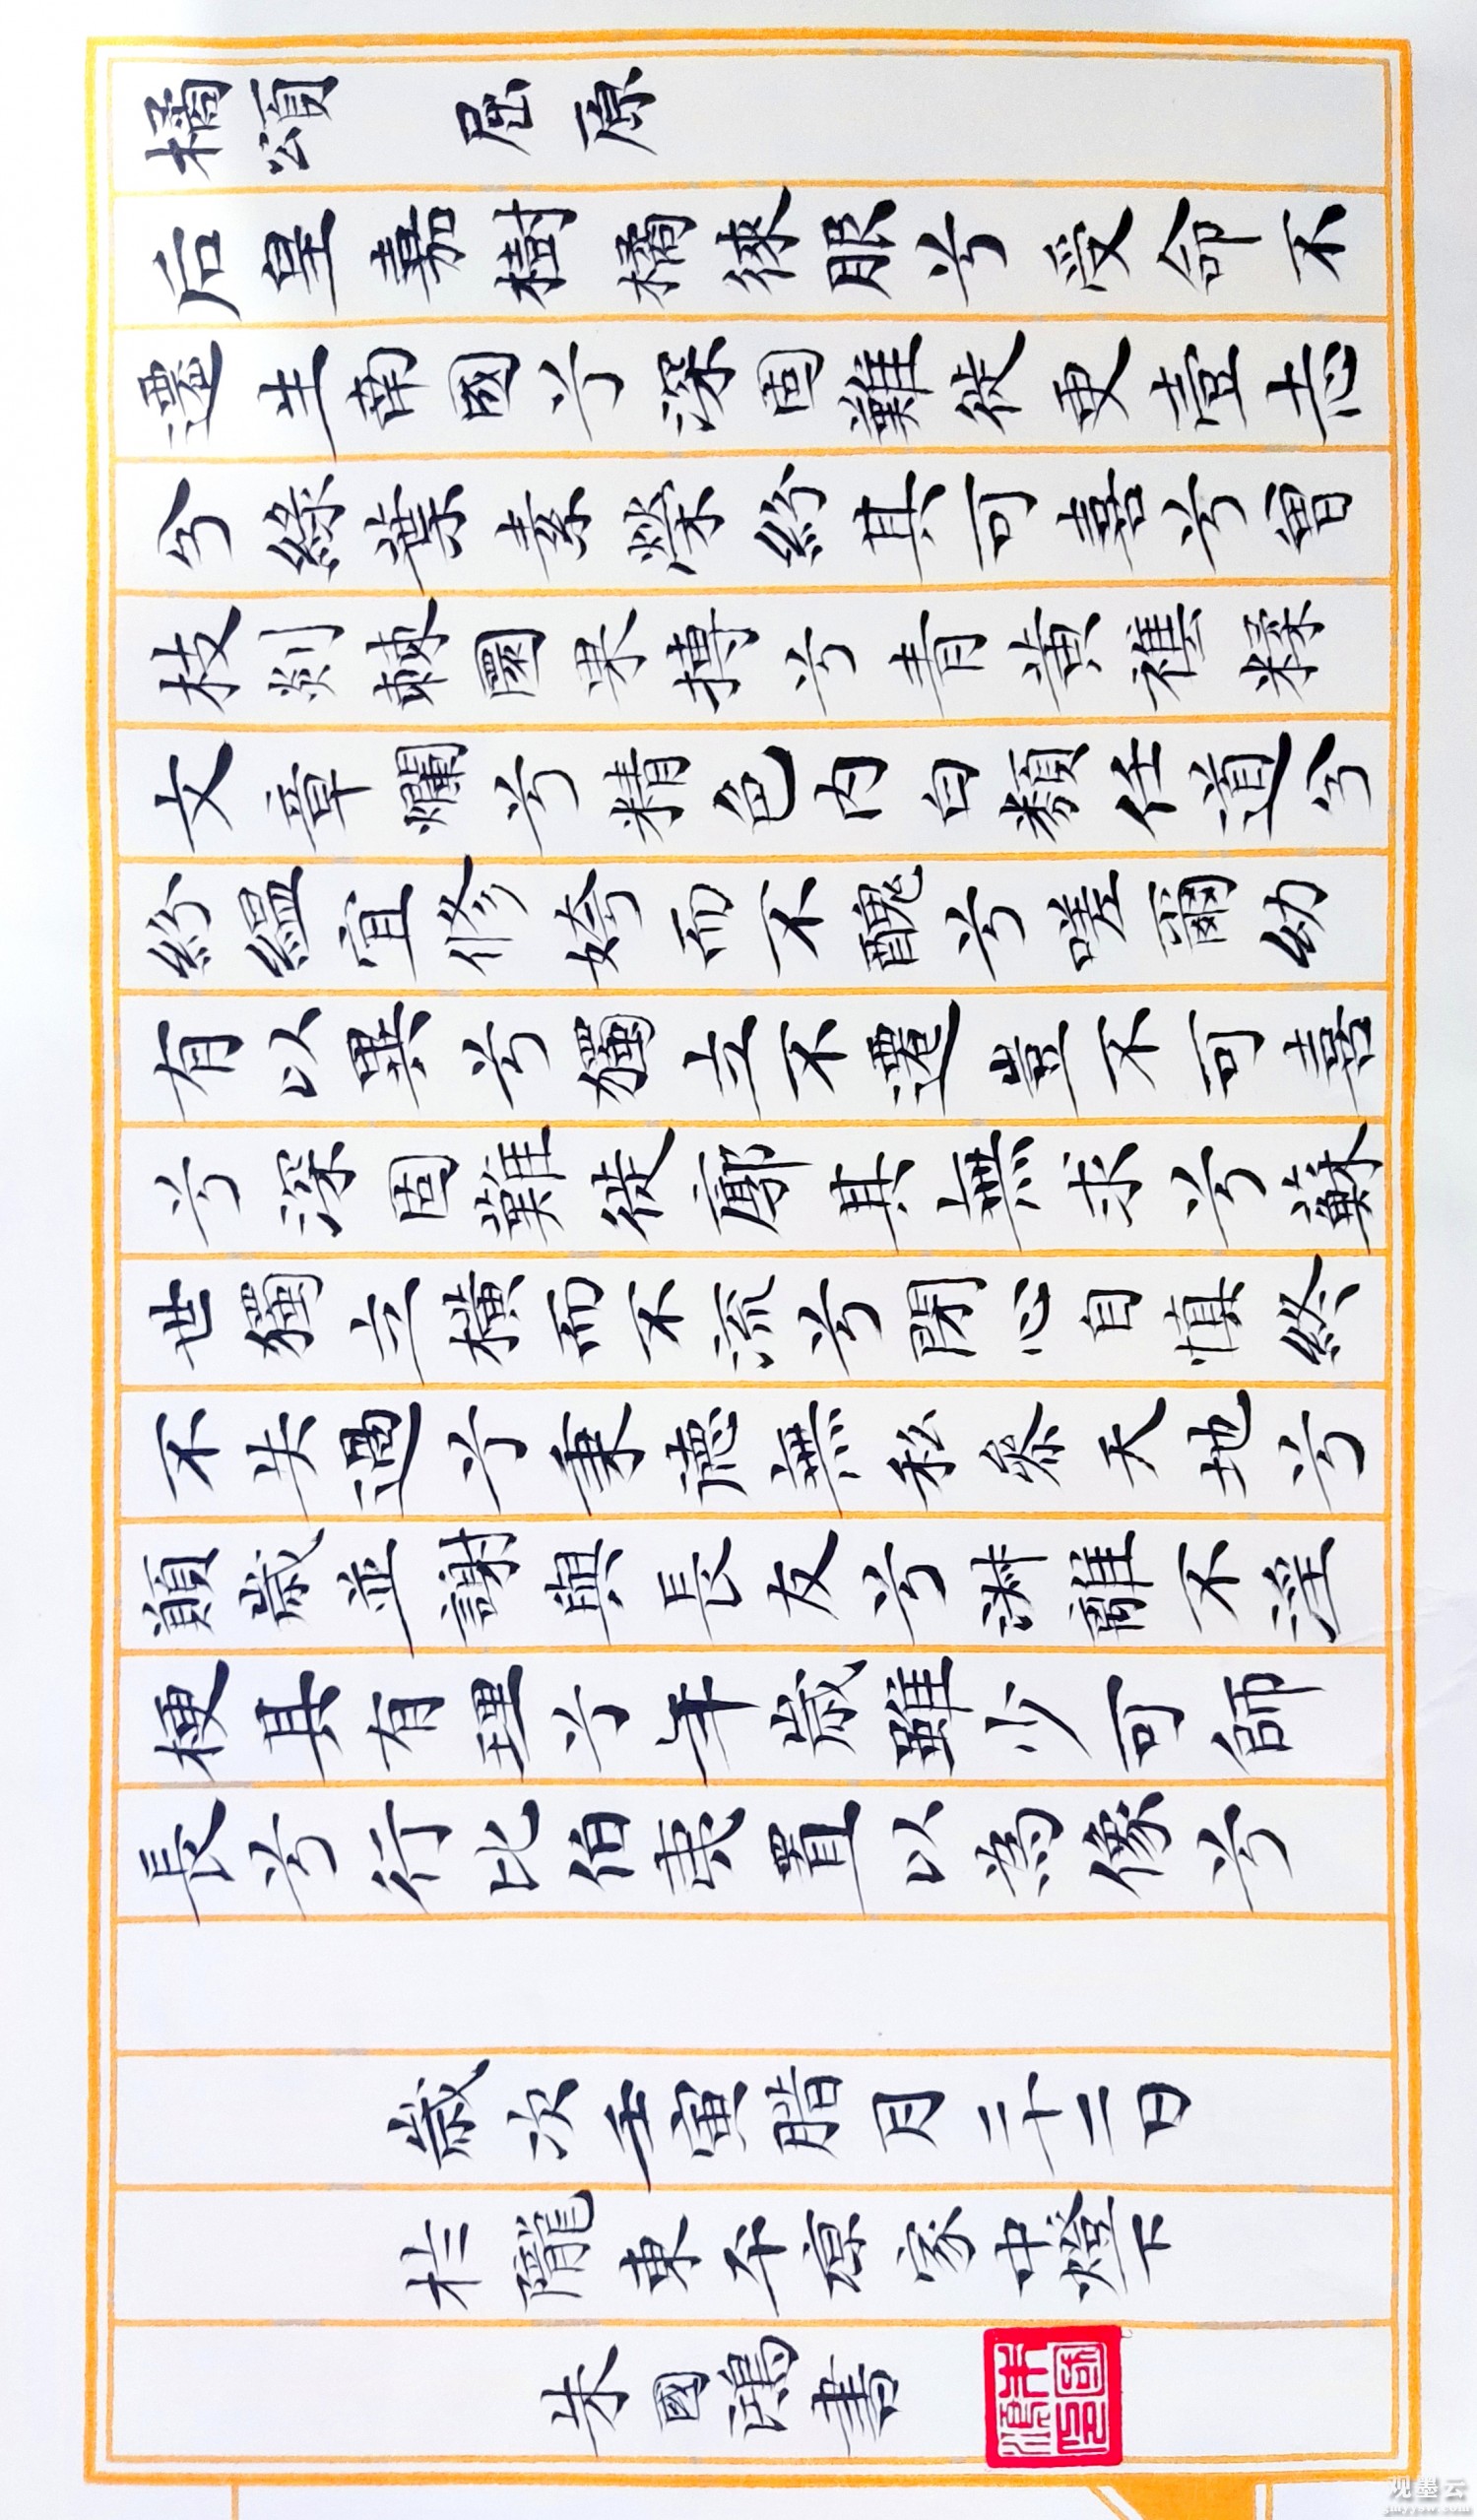 橘頌 屈原
后皇嘉樹橘徠服兮受命不
遷生南國兮深固難徙更壹志
兮綠葉素榮紛其可喜兮曾
枝剡棘圜果摶兮青黃雜糅
文章爛兮精色內白類任道兮
紛縕宜修姱而不醜兮嗟爾幼
有以異兮獨立不遷豈不可喜
兮深固難徙廓其無求兮蘇
世獨立橫而不流兮閉心自慎終
不失過兮秉德無私參天地兮
願歲並謝與長友兮淑離不淫
梗其有理兮年歲雖少可師
長兮行比伯夷置以為像兮
歲次壬寅腊月二十二日
於隴東平凉家中燈下
朱國鴻書
朱國鴻印
观墨云